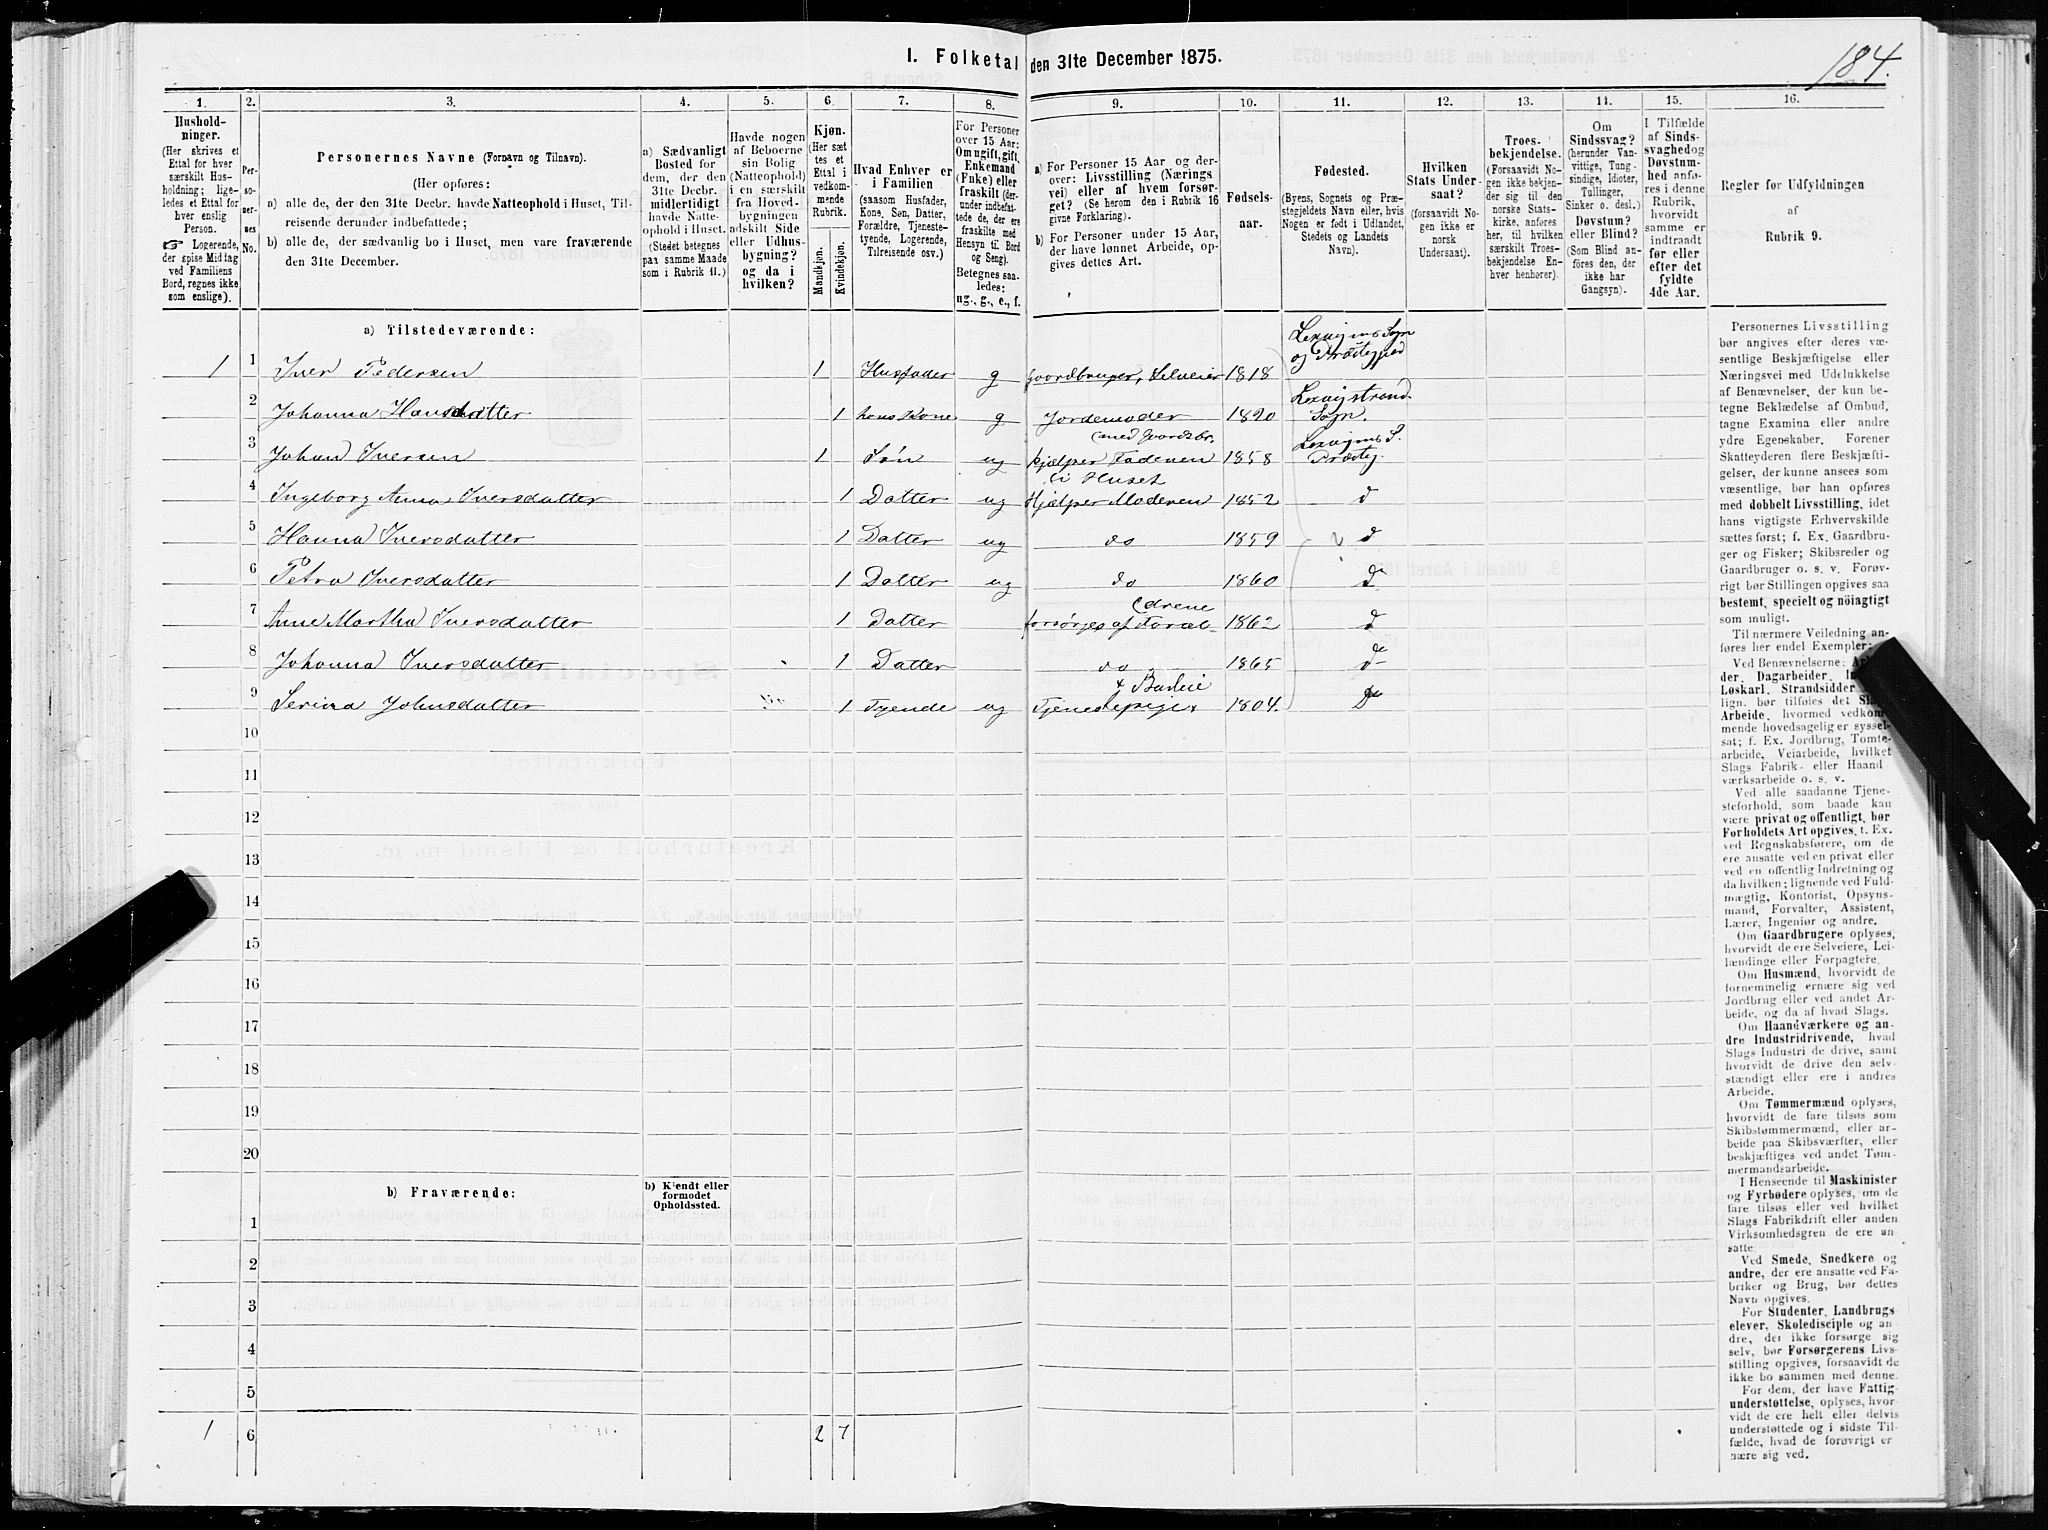 I. Folketal den 31te December 1875.
184.
1.
2.
3.
4.
5.
6.
7.
8.
9.
10.
11.
12.
13.
14.
15.
16.
Hushold-
ninger.
(Her skrives et
Ettal for hver
særskilt Hus-
holdning; lige-
ledes et Ettal for
hver enslig
Person.
☞ Logerende,
der spise Middag
ved Familiens
Bord, regnes ikke
som enslige).
Per-
so-
ner-
nes
No.
Personernes Navne (Fornavn og Tilnavn).
(Her opføres:
a) alle de, der den 31te Decbr. havde Natteophold i Huset, Til-
reisende derunder indbefattede;
b) alle de, der sædvanlig bo i Huset, men vare fraværende
den 31te December.
a) Sædvanligt
Bosted for
dem, der den
31te Decbr.
midlertidigt
havde Natte-
ophold i Huset.
(Stedet betegnes
paa samme Maade
som i Rubrik 11.)
Havde nogen
af Beboerne
sin Bolig
(Natteophold)
i en særskilt
fra Hoved-
bygningen
adskilt Side
eller Udhus-
bygning?
og da i
hvilken?
Kjøn.
(Her sæt-
tes et
Ettal i
vedkom-
mende
Rubrik.
Mandkjøn.
Kvindekjøn.
Hvad Enhver er
i Familien
(saasom Husfader,
Kone, Søn, Datter,
Forældre, Tjeneste-
tyende, Logerende,
Tilreisende osv.)
For Personer
over 15 Aar:
Om ugift, gift,
Enkemand
(Enke) eller
fraskilt (der-
under indbefat-
tede de, der ere
fraskilte med
Hensyn til Bord
og Seng).
Betegnes saa-
ledes:
ug., g., e., f.
a) For Personer 15 Aar og der-
over: Livsstilling (Nærings
vei) eller af hvem forsør-
get? (Se herom den i Rubrik 16
givne Forklaring).
b) For Personer under 15 Aar,
der have lønnet Arbeide, op-
gives dettes Art.
Fødsels-
aar.
Fødested.
(Byens, Sognets og Præ-
stegjeldets Navn eller, hvis
Nogen er født i Udlandet,
Stedets og Landets
Navn).
Hvilken
Stats Under-
saat?
(forsaavidt No-
gen ikke er
norsk
Undersaat).
Troes-
bekjendelse.
(Forsaavidt No-
gen ikke bekjen-
der sig til den
norske Stats-
kirke, anføres
her, til hvilken
særskilt Troes-
bekjendelse En-
hver henhører).
Om
Sindssvag?
(herunder Van-
vittige, Tung-
sindige, Idioter,
Tullinger,
Sinker o. desl.)
Døvstum?
eller Blind?
(Som Blind an-
føres den, der
ikke har
Gangsyn).
I Tilfælde
af Sinds-
svaghed og
Døvstum-
hed anfø-
res i denne
Rubrik,
hvorvidt
samme er
indtraadt
før eller
efter det
fyldte
4de Aar.
Regler for Udfyldningen
af
Rubrik 9.
a) Tilstedeværende:
1 1 Iver Pedersen 1 Husfader g Gaardbruger, Selveier 1818 Lexvigens Sogn og Præstegjed
2 Johanna Hansdatter 1 hans Kone g Jordemoder 1820 Lexvigstrand Sogn.
3 Johan Iversen 1 Søn ug hjælper Faderen med Gaardsbr. 1858 Lexvigens S. Præstg.
4 Ingeborg Anna Iversdatter 1 Datter ug Hjælper Moderen i Huset 1852 d
5 Hanna Iversdatter 1 Datter ug do 1859 d
6 Petra Iversdatter 1 Datter ug do 1860 d
7 Anne Martha Iversdatter 1 Datter forsørges af Foræl- drene 1862 d
8 Johanna Iversdatter 1 Datter do 1865 do
9 Serina Johnsdatter 1 Tyende ug Tjenestepige 1804. do
10
11
12
13
14
15
16
17
18
19
20
b) Fraværende:
b) Kjendt eller
formodet
Opholdssted.
1
2
3
4
5
1 6 2 7
Personernes Livsstilling
bør angives efter deres væ-
sentlige Beskjæftigelse eller
Næringsvei med Udelukkelse
af Benævnelser, der kun be-
tegne Beklædelse af Ombud,
tagne Examina eller andre
ydre Egenskaber. Forener
Skatteyderen flere Beskjæfti-
gelser, der kunne ansees som
væsentlige, bør han opføres
med dobbelt Livsstilling, idet
hans vigtigste Erhvervskilde
sættes først; f. Ex. Gaardbru-
ger og Fisker; Skibsreder og
Gaardbruger o. s. v. Forøv-
rigt bør Stillingen opgives saa
bestemt, specielt og nöiagtigt
som muligt.
Til nærmere Veiledning an-
føres her endel Exempler:
Ved Benævnelserne:
der, Dagarbeider,
Løskarl, Strandsidder
lign. bør tilføies det
Arbeide, hvormed vedkom-
mende hovedsagelig er syssel-
sat; f. Ex. Jordbrug, Tomte-
arbeide, Veiarbeide, hvilket
Slags Fabrik- eller Haand
værksarbeide o. s. v.
Ved alle saadanne Tjene-
steforhold, som baade kan
være privat og offentligt, bør
Forholdets Art opgives, t. Ex.
ved Regnskabsførere, om de
ere ansatte ved en privat eller
ved en offentlig Indretning og
da hvilken; lignende ved Fuld-
mægtig, Kontorist, Opsyns-
mand, Forvalter, Assistent,
Lærer, Ingeniør og andre.
Om Gaardbrugere oplyses,
hvorvidt de ere Selveiere, Lei-
lændinge eller Forpagtere.
Om Husmænd, hvorvidt de
fornemmelig ernære sig ved
Jordbrug eller ved andet Ar-
beide, og da af hvad Slags.
Om Haandværkere og an-
dre Industridrivende, hvad
Slags Industri de drive, samt
hvorvidt de drive den selv-
stændigt eller ere i andres
Arbeide.
Om Tømmermænd oplyses,
hvorvidt de fare tilsøs som
Skibstømmermænd, eller ar-
beide paa Skibsværfter, eller
beskjæftiges ved andet Tøm-
mermandsarbeide.
I Henseende til Maskinister
og Fyrbødere oplyses, om de
fare tilsøs eller ved hvilket
Slags Fabrikdrift eller anden
Virksomhedsgren de ere an-
satte.
Ved Smede, Snedkere og
andre, der ere ansatte ved Fa-
briker og Brug, bør dettes
Navn opgives.
For Studenter, Landbrugs
elever, Skoledisciple og an-
dre, der ikke forsørge sig
selv, bør Forsørgerens Livs-
stilling opgives, forsaavidt de
ikke bo sammen med denne.
For dem, der have Fattig-
understøttelse, oplyses, hvor-
vidt de ere helt eller delvis
understøttede og i sidste Til-
fælde, hvad de forøvrigt er
nære sig ved.